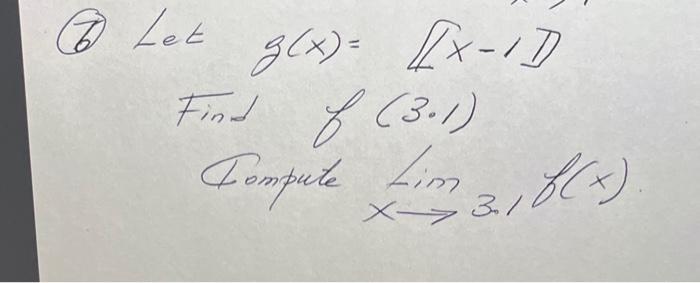 ⑦ Let g(x) = ⟦x-1⟧
Find f (3.1)
Compute Lim f(x).
x → 3.1